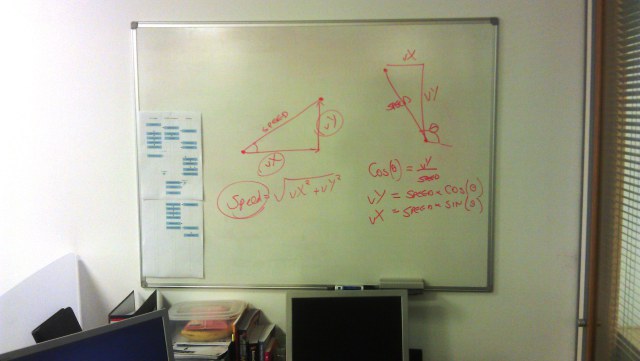 SPEED
vY
vX
Speed = √vX² + vY²
vX
SPEED
vY
θ
Cos(θ) = vY
SPEED
vY = SPEED × COS(θ)
vX = SPEED × SIN(θ)